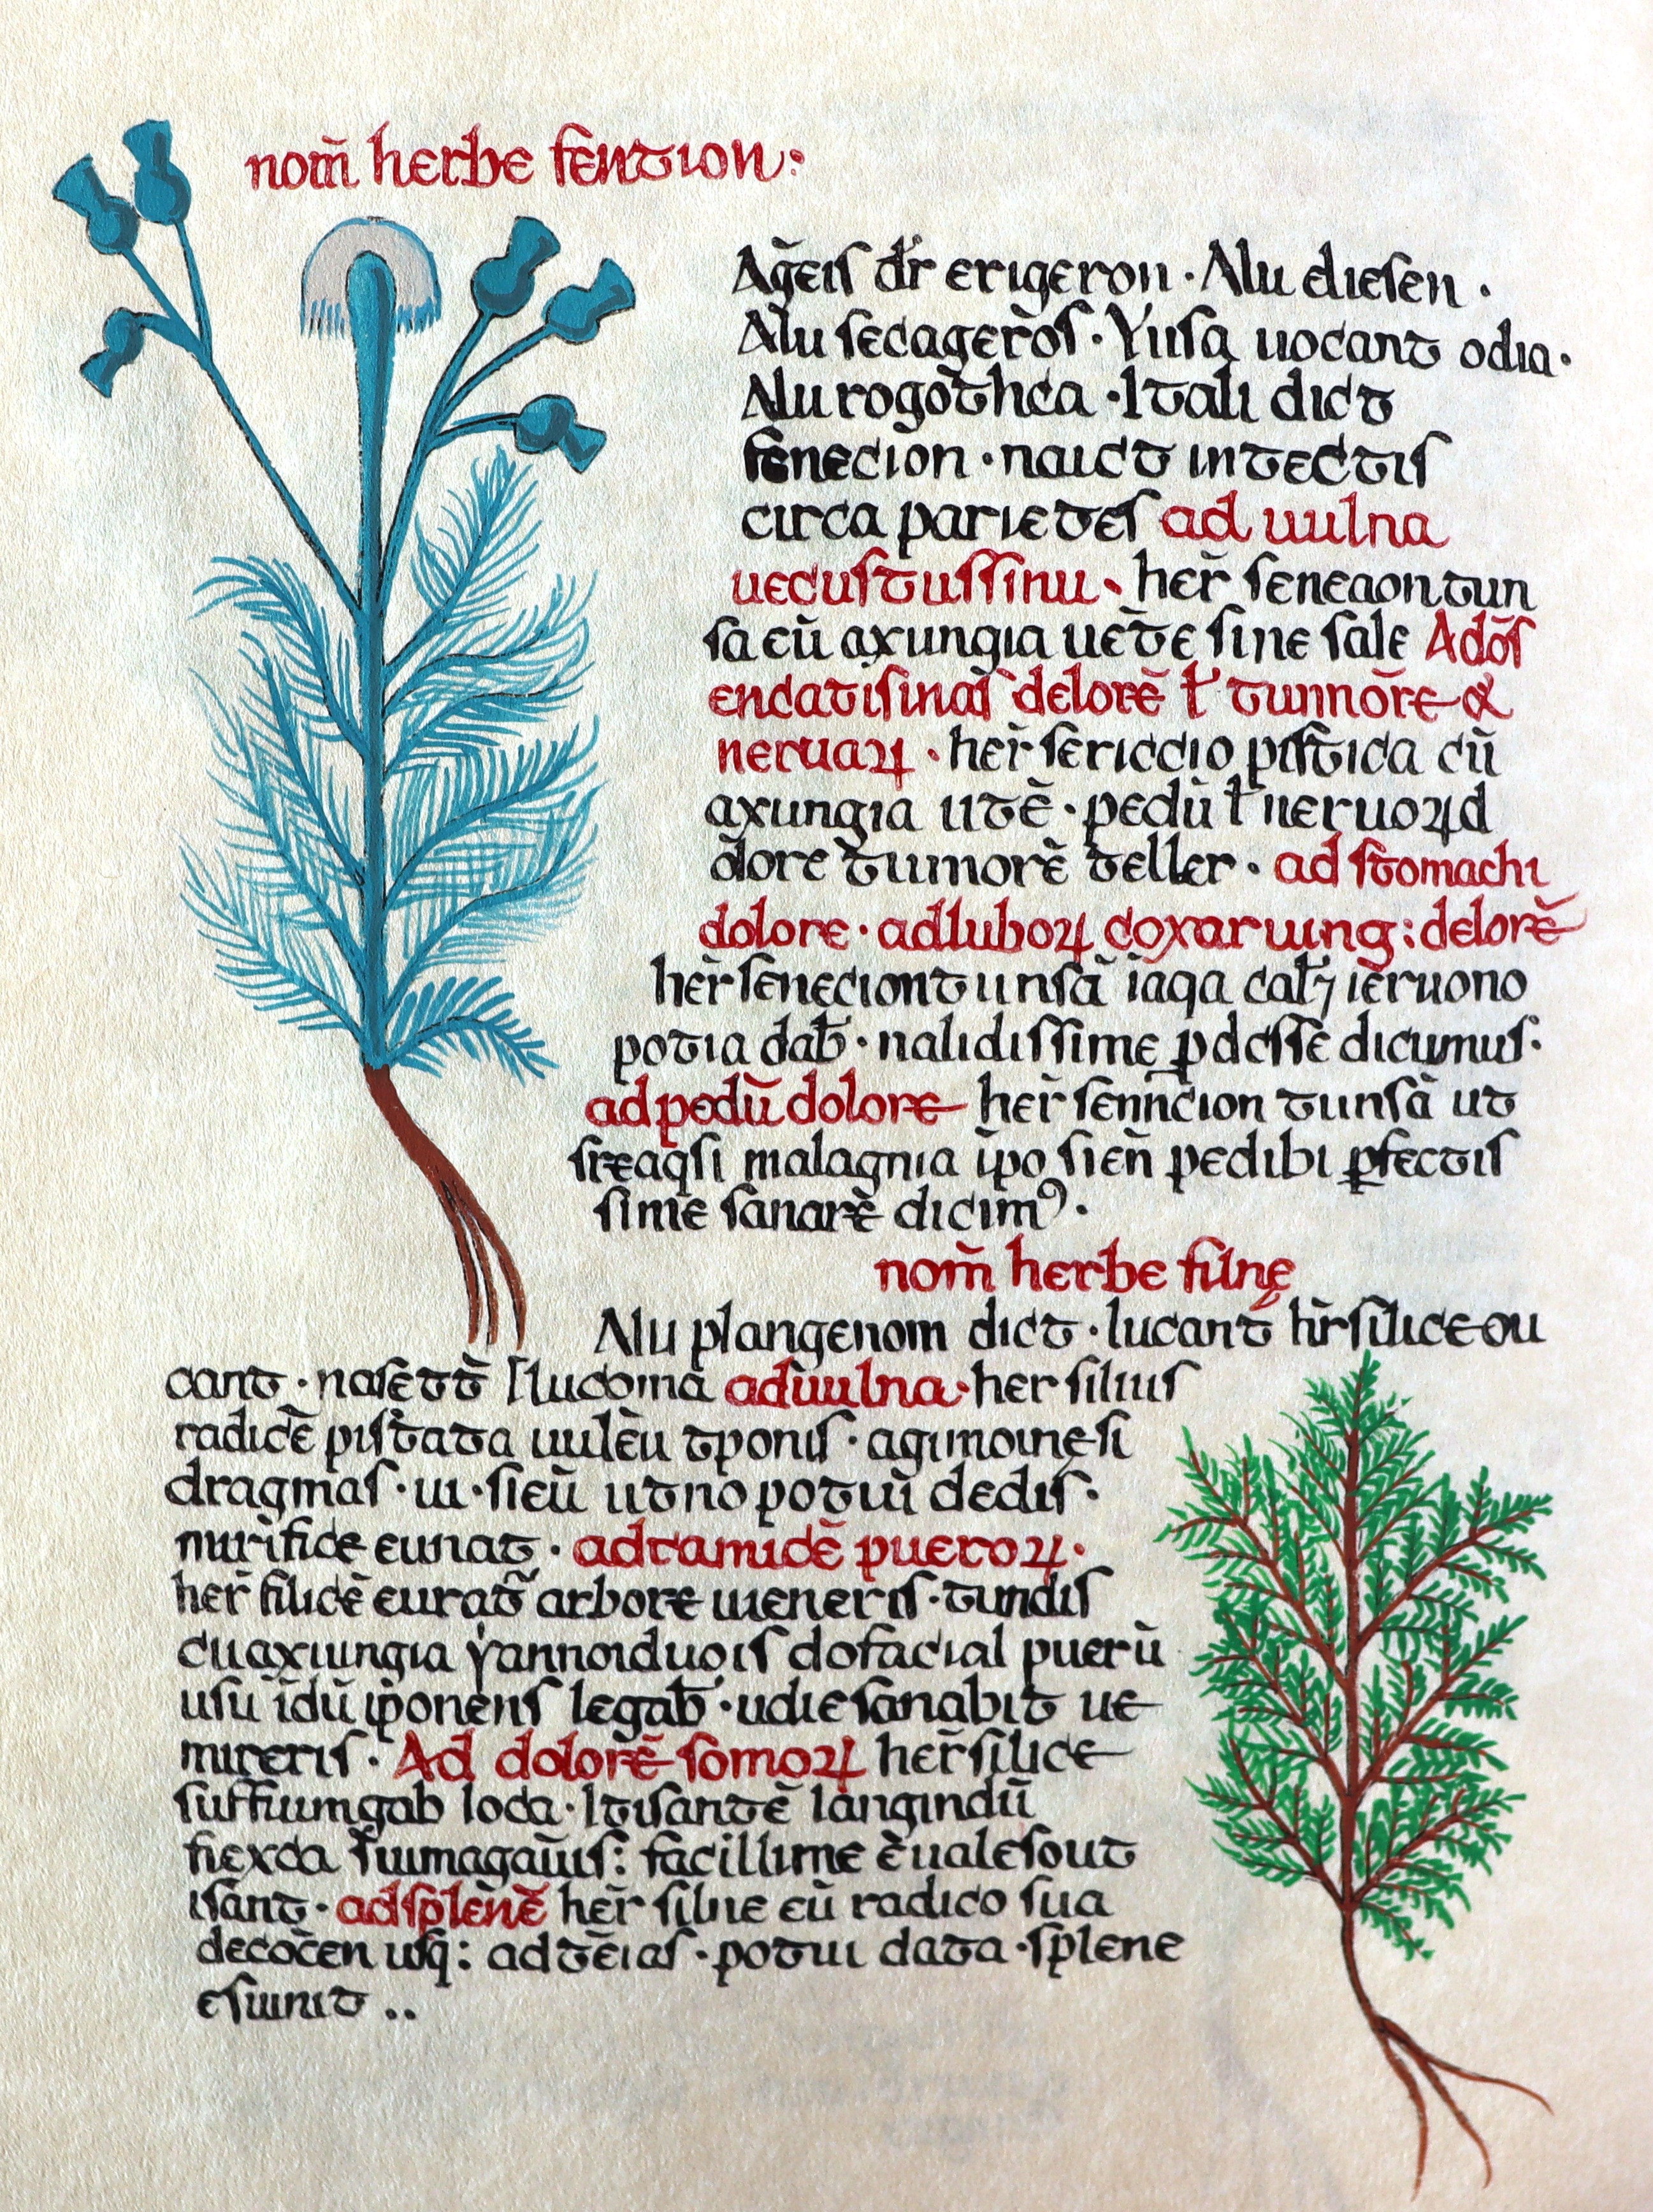 nom̄ herbe senτion:
Aḡeis dr̄ erigeron · Alu diesen ·
Alu secager̄os · Yusa uocant odia ·
Alu rogothca · Itali dict
senecion · naict intectis
circa parietes ad uulna
uecustussinu · her̄ seneaontun
sa cū axungia uete sine sale Adōs
endatisinas delorē ł tunnōre &
neruaꝝ · her̄ sericcio pistica cū
axungia utē · pedū ł neruoꝝ d
dore tumorē teller · ad stomachi
dolore · adluboꝝ coxaruung: delorē
her̄ seneciont unsā iaqa cał⁊ ieruono
potia dab̄ · nalidissime pdesse dicumus ·
ad pedū dolore her̄ sennc̄ion tunsā ut
sreaqsi malagnia īpo sien̄ pedibi ꝑfectis
sime sanarē dicimꝰ ·
nom̄ herbe filnę
Alu plangenom dict · lucant hr̄ silice ou
cant · nasett̄ lucoma ad uulna · her silius
radicē pistata uulēu tponis · agimoinesi
dragmas · ui · sieū utno potuī dedis ·
mirifice eunat · ad ramicē pueroꝝ ·
her̄ filicē eurat arbore uieneris · tundis
cuaxiungia yannoiduois dofacial puerū
usu īdū īponens legab̄ · udie sanabit ue
mireris · Ad dolorē somoꝝ her̄ silice
suffiumgab loca · Itisantē langindū
fiexca fuimagauis: facillime ēualesout
isant · ad splēnē her̄ silne cū radico sua
decocen usq: ad tēias · potui data · splene
esuinit ..